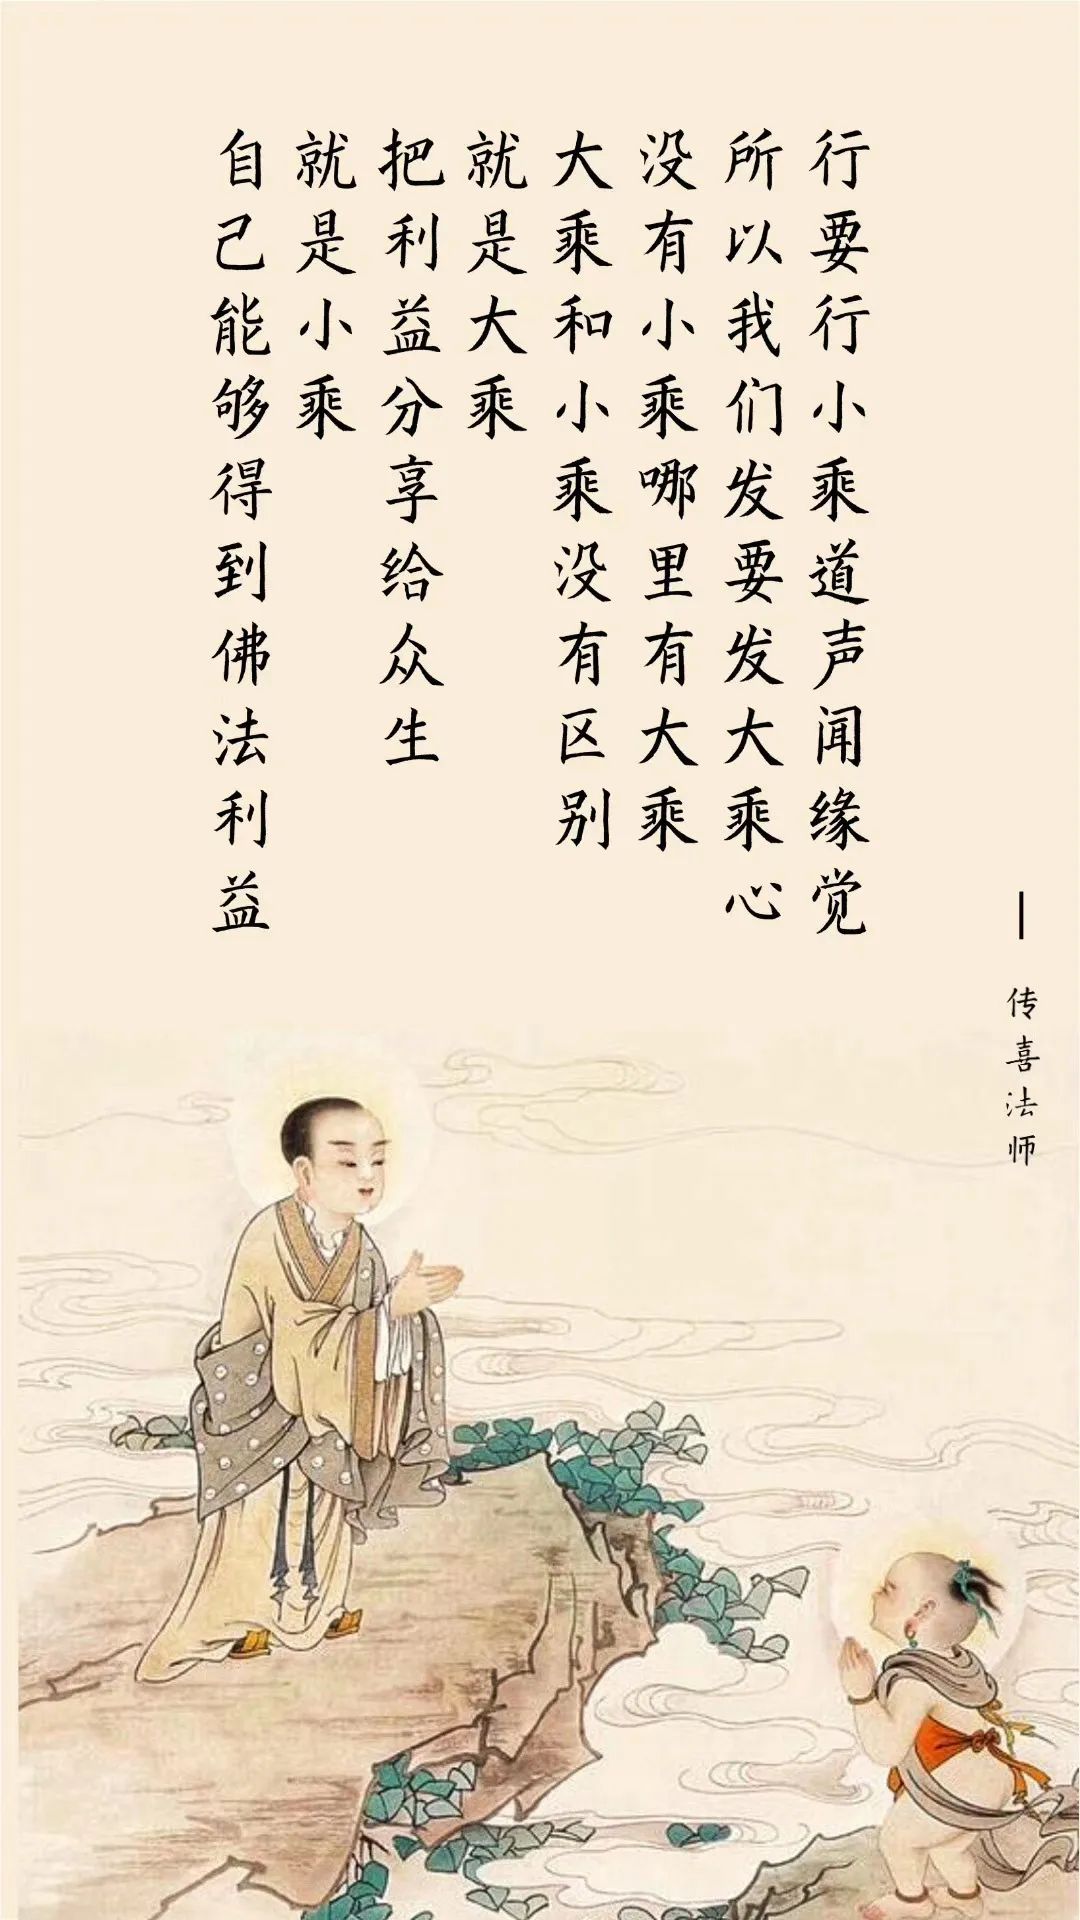 自己能够得到佛法利益
就是小乘
把利益分享给众生
就是大乘
大乘和小乘没有区别
没有小乘哪里有大乘
所以我们发要发大乘心
行要行小乘道声闻缘觉
— 传喜法师